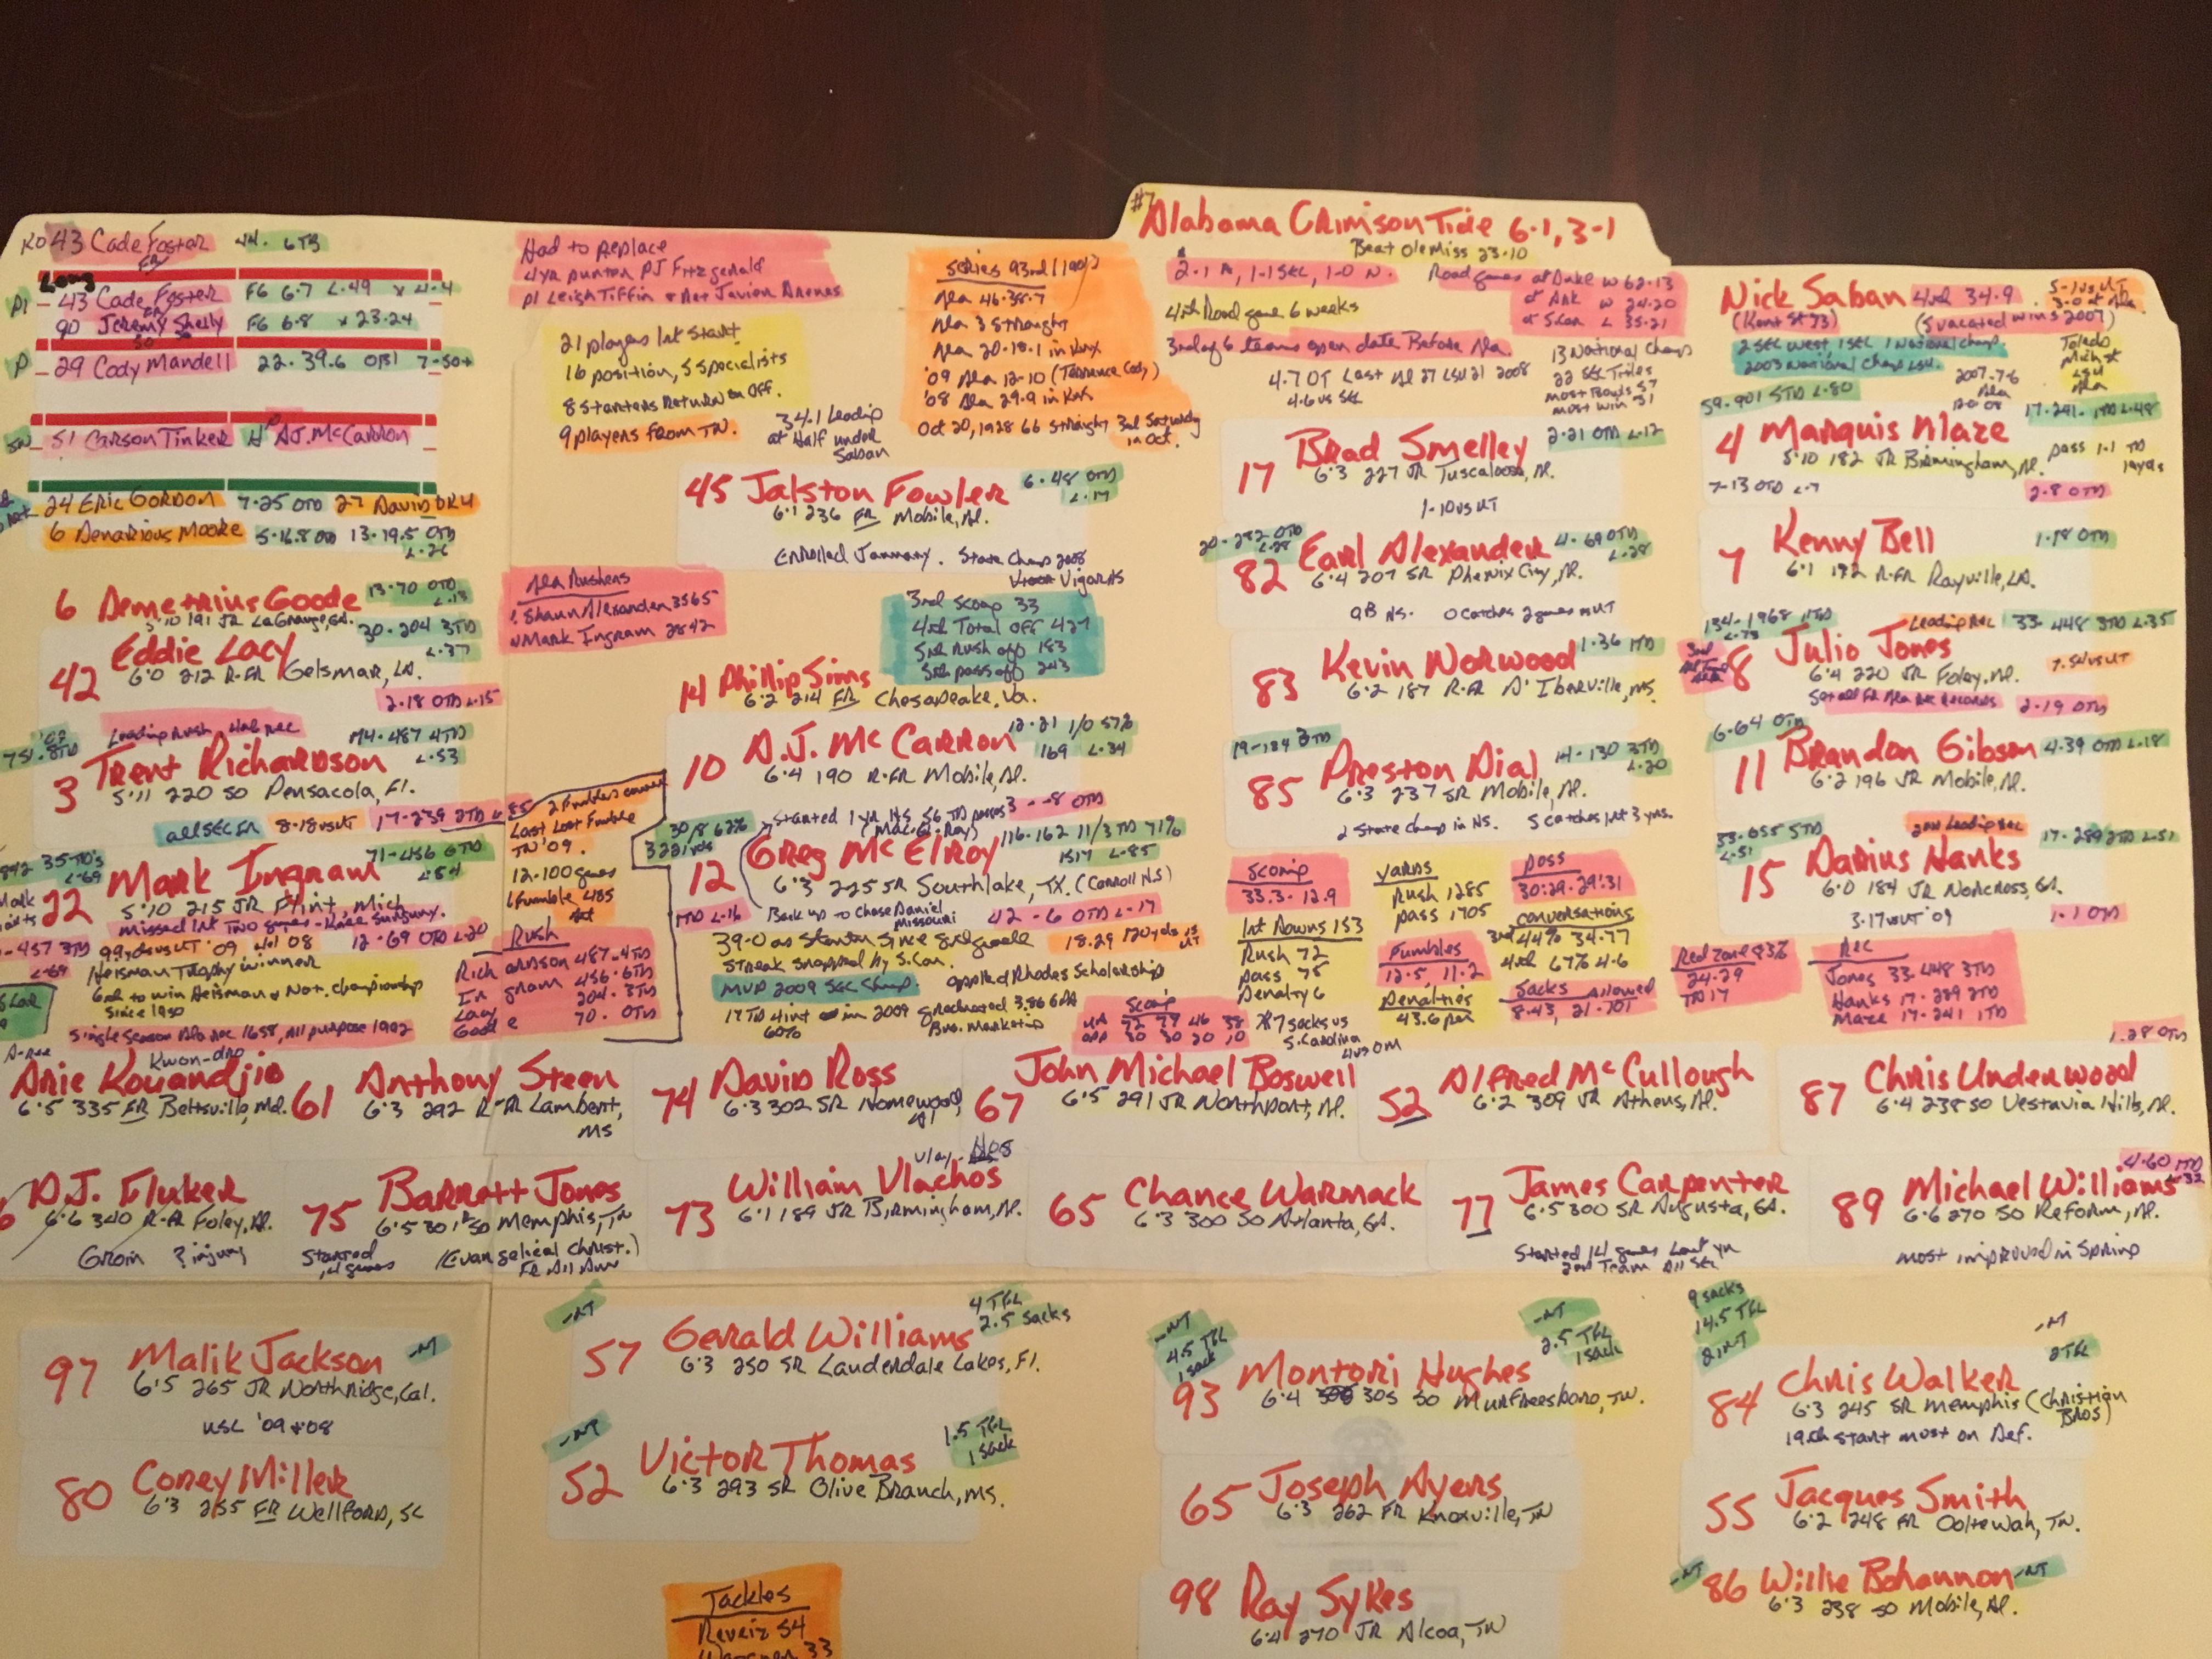 #7 Alabama Crimson Tide 6-1, 3-1
Beat Ole Miss 23-10
KO 43 Cade Foster 44. 6TB
FR
Long
P1 43 Cade Foster FG 6-7 L.49 x 4-4
90 Jeremy Shelly FG 6-8 x 23-24
SO
P 29 Cody Mandell 22. 39.6 OBl 7-50+
SN 51 Carson Tinker H AJ. McCarron
24 Eric Gordon 7-25 OTD 27 David Oku
6 Denarious Moore 5-16.8 OTD 13-19.5 OTD
L.26
Had to Replace
4yr punter PJ Fitzgerald
p1 Leigh Tiffin + Ret Javier Arenas
21 players 1st Start
16 position, 5 specialists
8 Starters Return on Off.
9 players From TN.
34-1 Leading
at Half under
Saban
Series 93rd (1901)
Ala 46-38-7
Ala 3 Straight
Ala 20-18-1 in Knx
'09 Ala 12-10 (Terrance Cody)
'08 Ala 29-9 in Knx
Oct 20, 1928 66 straight 3rd Saturday
in Oct.
2-1 A, 1-1 SEC, 1-0 N.
Road games at Duke W 62-13
at Ark W 24-20
at SCar L 35-21
4th Road game 6 weeks
3rd of 6 teams open date Before Ala.
4-7 OT Last Al 27 LSU 21 2008
4-6 vs SEC
13 National Champs
22 SEC Titles
most Bowls 57
most win 31
Nick Saban 4th 34-9
(Kent St 73) (5 vacated wins 2007)
5-1 vs UT
3-0 at Ala
2 SEC West 1 SEC 1 National Champ.
2003 National Champ LSU.
Toledo
Mich St
LSU
Ala
2007 7-6
Ala
12-0 08
45 Jalston Fowler 6-48 OTD
L.17
6-1 236 FR Mobile, Al.
Enrolled January. State Champ 2008
Vigor HS
17 Brad Smelley 2-21 OTD L.12
6-3 227 JR Tuscaloosa, Al.
1-10 vs UT
59-901 5TD L.80
17-241. 1TD L.48
4 Marquis Maze
5-10 182 JR Birmingham, Al.
pass 1-1 TD
7-13 OTD L.7
2-8 OTD
20-282 OTD
L.28
82 Earl Alexander 4-69 OTD
L.28
6-4 207 SR Phenix City, Al.
QB HS. 0 catches 2 games vs UT
7 Kenny Bell 1-18 OTD
6-1 172 R-FR Rayville, LA.
6 Demetrius Goode 13-70 OTD
L.13
5-10 191 JR LaGrange, GA.
30-204 3TD
L.37
42 Eddie Lacy
6-0 212 R-FR Geismar, LA.
2-18 OTD L.15
Ala Rushers
1 Shaun Alexander 3565
Mark Ingram 2842
3rd Scoring 33
4th Total Off 427
5th Rush off 183
5th pass off 243
14 Phillip Sims
6-2 214 FR Chesapeake, Va.
83 Kevin Norwood 1-36 1TD
6-2 187 R-FR D'Iberville, MS.
134-1968 11TD
L.73
Leading Rec 33-448 3TD L.35
8 Julio Jones
6-4 220 JR Foley, Al.
7-54 vs UT
Set all FR Ala Rec Records 2-19 OTD
'09
751. 8TD
Leading Rush + Rec
114-487 4TD
L.53
3 Trent Richardson
5-11 220 SO Pensacola, Fl.
all SEC FR 8-18 vs UT 17-239 2TD L.85
10 A.J. McCarron 12-21 1/0 57%
169 L.34
6-4 190 R-FR Mobile, Al.
19-184 3TD
85 Preston Dial 14-130 3TD
L.20
6-3 237 SR Mobile, Al.
2 State Champ in HS. 5 catches 1st 3 yrs.
6-64 OTD
11 Brandon Gibson 4-39 OTD L.18
6-2 196 JR Mobile, Al.
2 Fumbles career
Last Lost Fumble
TN '09.
12-100 games
1 Fumble 485
35 TD's
L.69
71-456 6TD
L.54
22 Mark Ingram
5-10 215 JR Flint, Mich
missed 1st two games - Knee Surgury.
99 yds vs UT '09 12-69 OTD L.20
-437 3TD
L.69
Heisman Trophy winner
6th to win Heisman + Nat. championship
Since 1950
Single Season Ala rec 1658, All purpose 1992
Rush
Richardson 487-4TD
Ingram 456-6TD
Lacy 204. 3TD
Goode 70. OTD
30/8 62%
3221 yds
Started 1 yr HS 56 TD passes 3 - -8 OTD
116-162 11/3 TD 71%
1517 L.85
12 Greg McElroy
6-3 225 SR Southlake, TX. (Carroll H.S)
1TD L.16 Back up to Chase Daniel
Missouri 42 -6 OTD L.17
39-0 as Starter Since 8th grade
Streak Snapped by S.Car.
18-29 120 yds vs UT
MVP 2009 SEC Champ. applied Rhodes Scholarship
17 TD 4 int in 2009 graduated 3.86 GPA
60% Bus. Marketing
Scoring
UA 72 77 46 38
OPP 30 30 20 10
*7 sacks vs
S. Carolina
4 vs OM
Scoring
33.3 - 12.9
1st Downs 153
Rush 72
pass 75
Penalty 6
Yards
Rush 1285
pass 1705
Fumbles
12-5, 11-2
Penalties
43.6 per
Poss
30:29. 29:31
conversations
3rd 44% 34-77
4th 67% 4-6
Sacks Allowed
8-43, 21-101
Red Zone 83%
24-29
TD 17
33-655 5TD
L.51
2nd Leading Rec 17-289 2TD L.51
15 Darius Hanks
6-0 184 JR Norcross, GA.
3-17 vs UT '09 1-1 OTD
Rec
Jones 33-448 3TD
Hanks 17-289 2TD
Maze 17-241 1TD
Kwon-dro
Arie Kouandjio
6-5 335 FR Beltsville, Md.
61 Anthony Steen
6-3 292 R-FR Lambert,
MS
74 David Ross
6-3 302 SR Homewood,
Al
67 John Michael Boswell
6-5 291 JR Northport, Al.
52 Alfred McCullough
6-2 309 JR Athens, Al.
1-28 OTD
87 Chris Underwood
6-4 238 SO Vestavia Hills, Al.
D.J. Fluker
6-6 340 R-FR Foley, Al.
Groin ? injury
75 Barrett Jones
6-5 301 SO Memphis, TN
Started
14 games
(Evangelical Christ.)
FR All Am
73 William Vlachos
6-1 189 JR Birmingham, Al.
65 Chance Warmack
6-3 300 SO Atlanta, GA.
77 James Carpenter
6-5 300 SR Augusta, GA.
Started 14 games Last yr
2nd Team All SEC
4-60 1TD
L.32
89 Michael Williams
6-6 270 SO Reform, Al.
most improved in Spring
97 Malik Jackson -NT
6-5 265 JR Northridge, Cal.
USC '09 + 08
80 Corey Miller
6-3 255 FR Wellford, SC
-NT
57 Gerald Williams
4 TFL
2.5 Sacks
6-3 250 SR Lauderdale Lakes, Fl.
-NT
52 Victor Thomas
1.5 TFL
1 Sack
6-3 293 SR Olive Branch, MS.
-NT
4.5 TFL
1 sack
-NT
2.5 TFL
1 sack
93 Montori Hughes
6-4 305 SO Murfreesboro, TN.
65 Joseph Ayers
6-3 262 FR Knoxville, TN
98 Ray Sykes
6-4 270 JR Alcoa, TN
9 sacks
14.5 TFL
2 INT
-NT
2 TFL
84 Chris Walker
6-3 245 SR Memphis (Christian
Bros)
19th Start most on Def.
55 Jacques Smith
6-2 248 FR Ooltewah, TN.
-NT 86 Willie Bohannon -NT
6-3 238 SO Mobile, Al.
Tackles
Reveiz 54
33